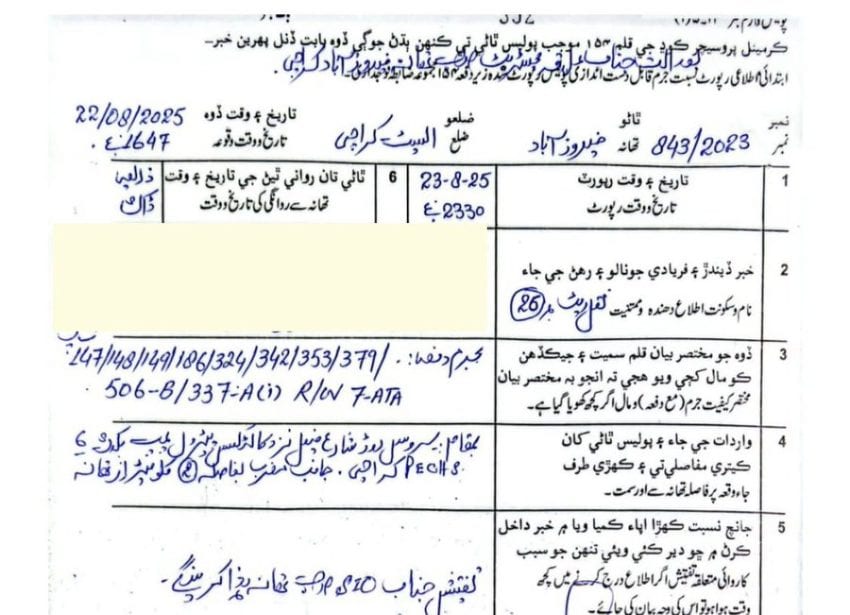 332
ڪرمينل پروسيجر ڪوڊ جي قلم ۱۵۴ موجب پوليس ٿاڻي تي ڪنهن ٻڌڻ جوڳي ڏوه بابت ڏنل پهرين خبر۔
ابتدائی اطلاعی رپورٹ نسبت جرم قابل دست اندازی پولیس رپورٹ شدہ زیر دفعہ ۱۵۴ مجموعہ ضابطہ فوجداری۔
نمبر 843/2023 ٿاڻو فیروز آباد ضلعو ایسٹ کراچی تاريخ ۽ وقت ڏوه 22/08/2025
نمبر تھانہ ضلع تاریخ و وقت وقوعہ 1647
1 تاريخ ۽ وقت رپورٽ 23-8-25 6 ٿاڻي تان رواني ٿيڻ جي تاريخ ۽ وقت بذریعہ
تاریخ و وقت رپورٹ 2330 تھانہ سے روانگی کی تاریخ و وقت ڈاک
2 خبر ڏيندڙ ۽ فريادي جو نالو ۽ رهڻ جي جاء
نام و سکونت اطلاع دھندہ و مستغیث 26
3 ڏوه جو مختصر بيان قلم سميت ۽ جيڪڏهن بجرم دفعہ: 147/148/149/186/324/342/353/379/
ڪو مال کڄي ويو هجي ته انجو به مختصر بيان 506-B/337-A(i) R/W 7-ATA
مختصر کیفیت جرم (مع دفعہ) و مال اگر کچھ کھویا گیا ہے۔
4 واردات جي جاء ۽ پوليس ٿاڻي کان بمقام: سروس روڈ شارع فیصل نزد پیٹرول پمپ بلاک 6
ڪيتري مفاصلي تي ۽ ڪهڙي طرف PECHS کراچی۔ جانب مغرب بفاصلہ 2 کلومیٹر از تھانہ
جاء وقوعہ پر فاصلہ تھانہ سے اور سمت۔
5 جانچ نسبت ڪهڙا اپاء ڪيا ويا ۾ خبر داخل
ڪرڻ ۾ جو دير ڪئي ويئي تنهن جو سبب
کاروائی متعلقہ تفتیش اگر اطلاع درج کرنے میں کچھ تفتیش جناب SIO صاحب تھانہ ہذا کریں گے۔
وقت ہوا ہو تو اس کی وجہ بیان کی جائے۔